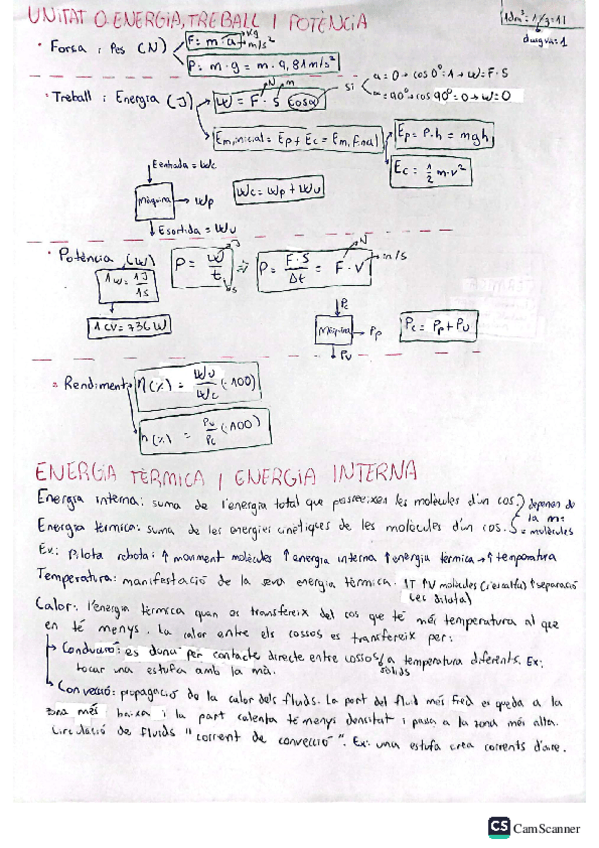 UNITAT 0. ENERGIA, TREBALL I POTÈNCIA
1dm³ = 1l
aigua=1
· Força i Pes (N)
F = m · a → m/s²
kg
P = m · g = m · 9,81 m/s²
· Treball i Energia (J)
N m
W = F · S · cosα
si
α = 0 → cos 0° = 1 → W = F · S
α = 90° → cos 90° = 0 → W = 0
Em,inicial = Ep + Ec = Em,final
Ep = P · h = mgh
Ec = 1/2 m · v²
Eentrada = Wc
Màquina → Wp
Wc = Wp + Wu
Esortida = Wu
· Potència (W)
1W = 1J/1s
1CV = 736 W
P = W/t
J
s
P = F · S/Δt = F · V
N
m/s
Pc
Màquina → Pp
Pu
Pc = Pp + Pu
· Rendiment
η(%) = Wu/Wc (·100)
η(%) = Pu/Pc (·100)
ENERGIA TÈRMICA I ENERGIA INTERNA
Energia interna: suma de l'energia total que posseeixen les molècules d'un cos.
Energia tèrmica: suma de les energies cinètiques de les molècules d'un cos.
depenen de
la m i
molècules
Ex: Pilota rebota: ↑ moviment molècules ↑ energia interna ↑ energia tèrmica → ↑ temperatura
Temperatura: manifestació de la seva energia tèrmica. ↑T ↑V molècules (s'escalfa) ↑ separació
(es dilata)
Calor: l'energia tèrmica quan es transfereix del cos que té més temperatura al que
en té menys. La calor entre els cossos es transfereix per:
Conducció: es dona per contacte directe entre cossos a temperatura diferents. Ex:
sòlids
tocar una estufa amb la mà.
Convecció: propagació de la calor dels fluids. La part del fluid més fred es queda a la
zona més baixa i la part calenta té menys densitat i passa a la zona més alta.
Circulació de fluids "corrent de convecció". Ex: una estufa crea corrents d'aire.
CS CamScanner